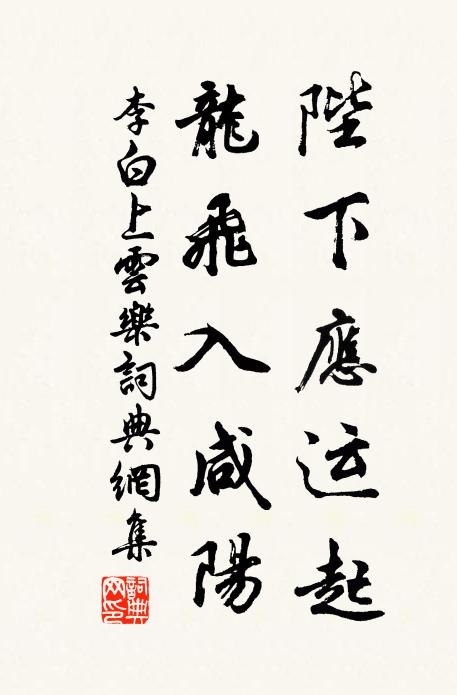 陛下應运起
龍飛入咸陽
李白上雲樂詞典網集
詞典网印